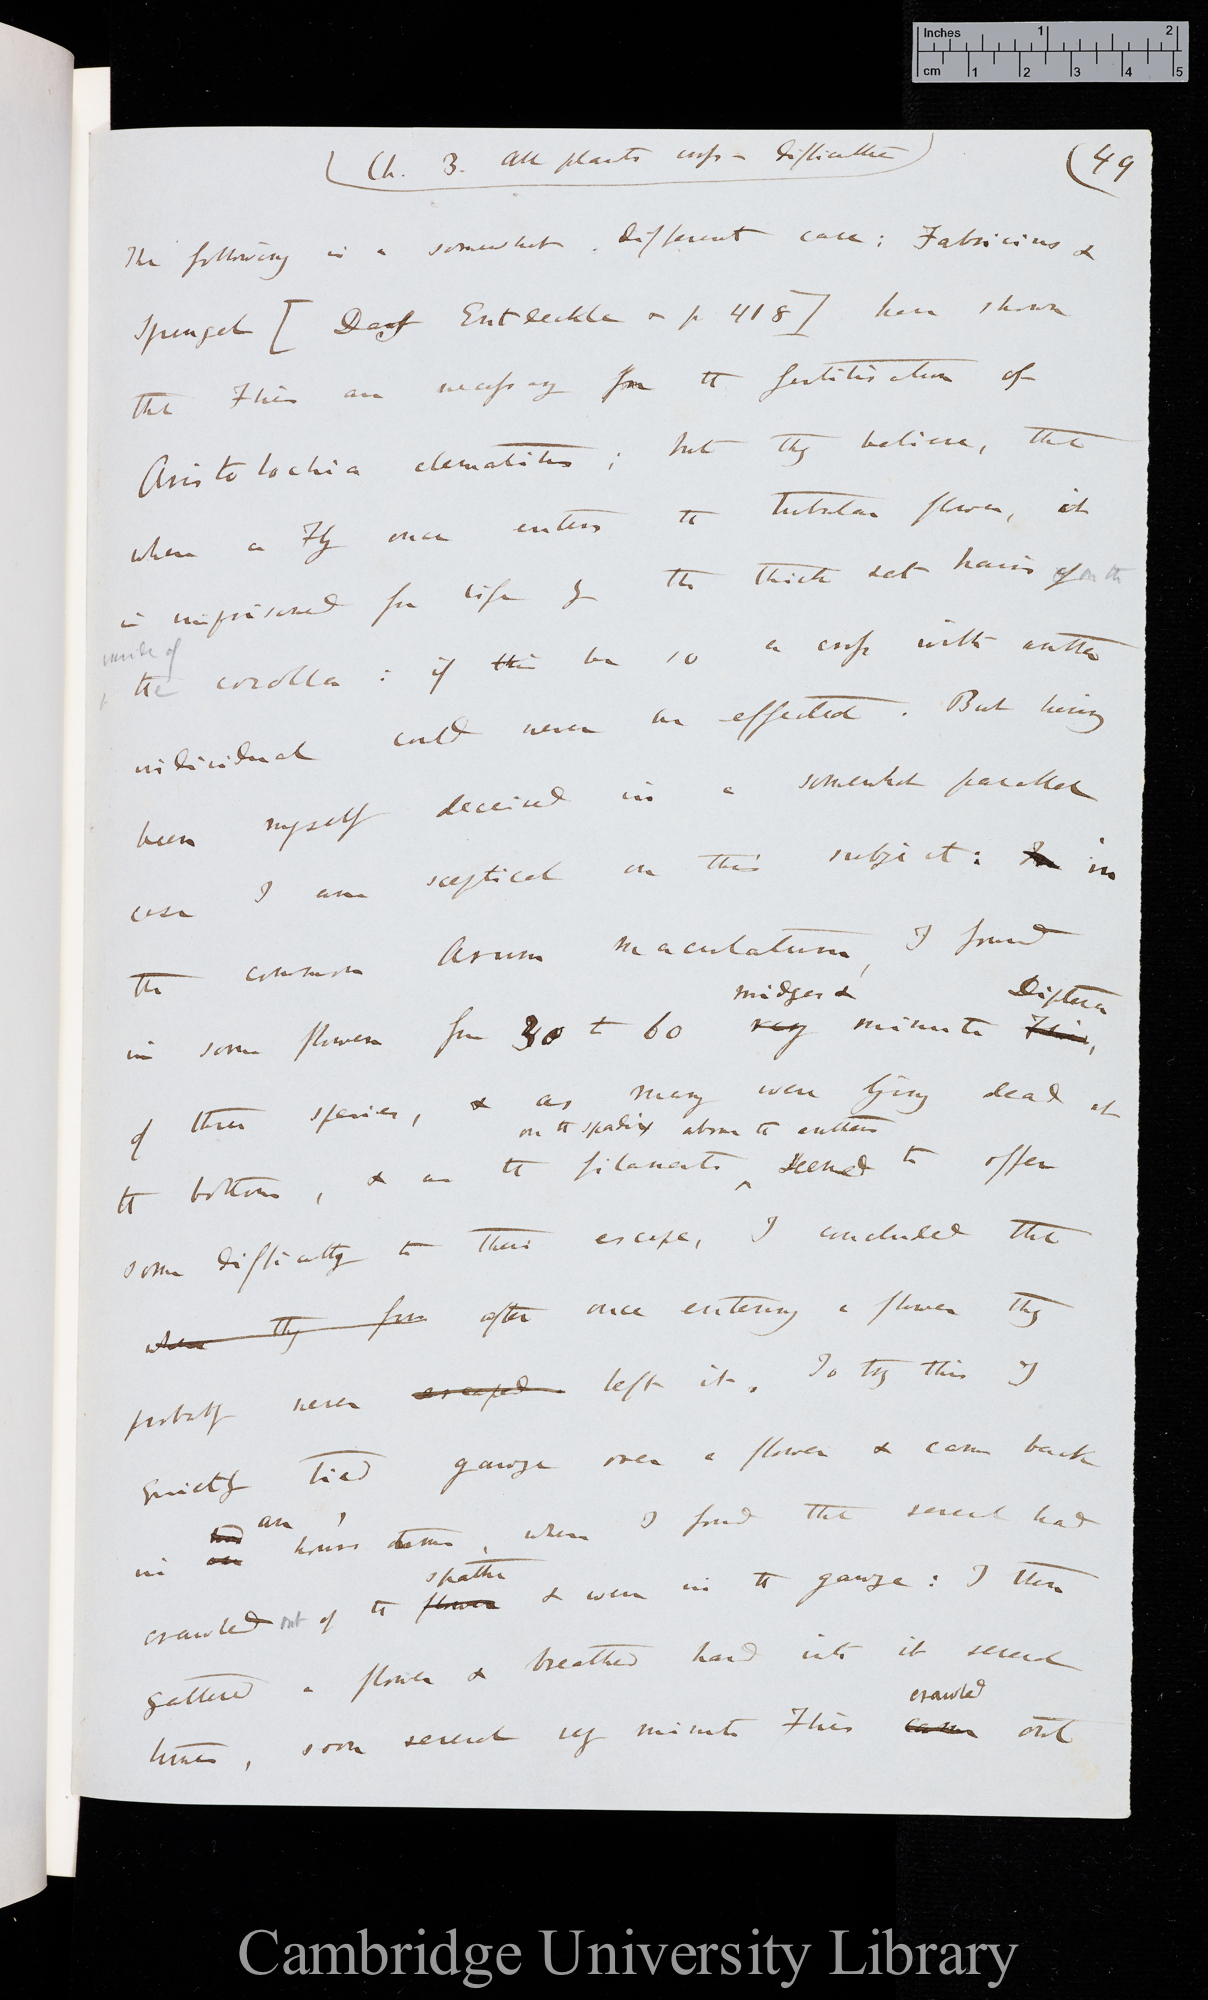 Inches 1 2
cm 1 2 3 4 5
(Ch. 3. All plants cross – Difficulties)
(49
The following is a somewhat different case: Fabricius &
Sprengel [Das Entdeckte – p 418] have shown
that Flies are necessary for the fertilisation of
Aristolochia clematitis; but they believe, that
when a Fly once enters the tubular flower, it
is imprisoned for life by the thick set hairs of on the
inside of
the corolla: if this be so a cross with another
individual could never be effected. But having
been myself deceived in a somewhat parallel
case I am sceptical on this subject: In in
the common Arum maculatum, I found
midges & Diptera
in some flowers from 30 to 60 very minute Flies,
of three species, & as many were lying dead at
on the spadix above the anthers
the bottom, & as the filaments ^ seemed to offer
some difficulty to their escape, I concluded that
when they from after once entering a flower they
probably never escaped left it. To try this I
quietly tied gauze over a flower & came back
an
in an hours time, when I found that several had
spathe
crawled out of the flower & were in the gauze: I then
gathered a flower & breathed hard into it several
crawled
times, soon several very minute Flies came out
Cambridge University Library